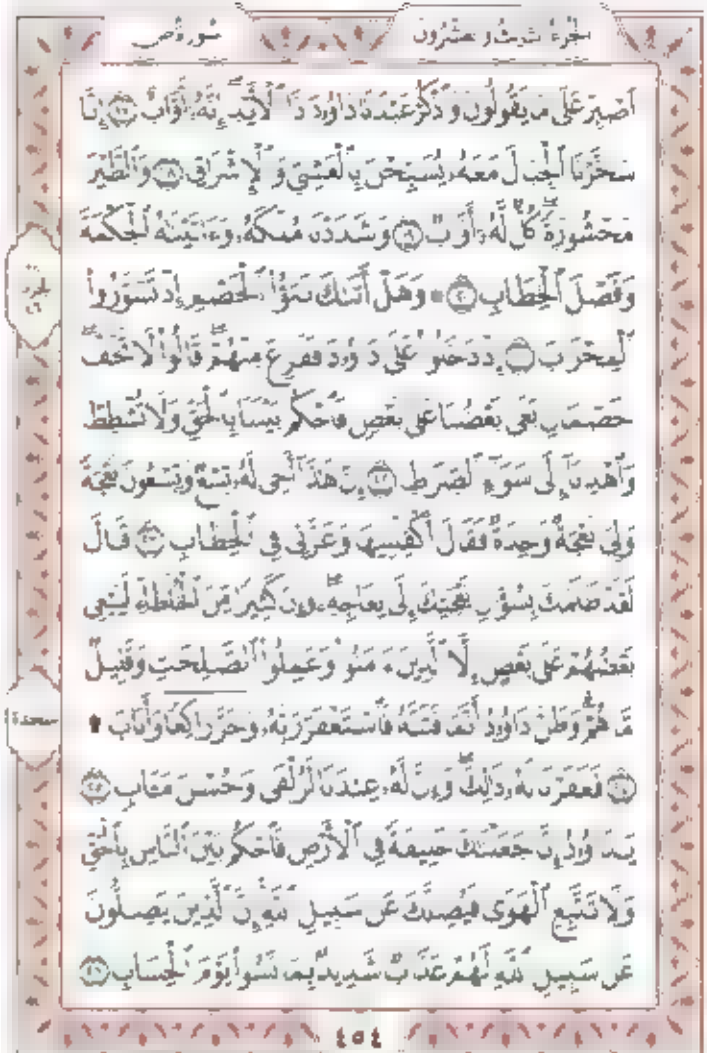 الجزء الثالث والعشرون سورة ص
ٱصْبِرْ عَلَىٰ مَا يَقُولُونَ وَٱذْكُرْ عَبْدَنَا دَاوُۥدَ ذَا ٱلْأَيْدِ إِنَّهُۥٓ أَوَّابٌ ۝١٧ إِنَّا
سَخَّرْنَا ٱلْجِبَالَ مَعَهُۥ يُسَبِّحْنَ بِٱلْعَشِىِّ وَٱلْإِشْرَاقِ ۝١٨ وَٱلطَّيْرَ
مَحْشُورَةً كُلٌّ لَّهُۥٓ أَوَّابٌ ۝١٩ وَشَدَدْنَا مُلْكَهُۥ وَءَاتَيْنَٰهُ ٱلْحِكْمَةَ
وَفَصْلَ ٱلْخِطَابِ ۝٢٠ ۞ وَهَلْ أَتَىٰكَ نَبَؤُا۟ ٱلْخَصْمِ إِذْ تَسَوَّرُوا۟
ٱلْمِحْرَابَ ۝٢١ إِذْ دَخَلُوا۟ عَلَىٰ دَاوُۥدَ فَفَزِعَ مِنْهُمْ قَالُوا۟ لَا تَخَفْ
خَصْمَانِ بَغَىٰ بَعْضُنَا عَلَىٰ بَعْضٍ فَٱحْكُم بَيْنَنَا بِٱلْحَقِّ وَلَا تُشْطِطْ
وَٱهْدِنَآ إِلَىٰ سَوَآءِ ٱلصِّرَٰطِ ۝٢٢ إِنَّ هَٰذَآ أَخِى لَهُۥ تِسْعٌ وَتِسْعُونَ نَعْجَةً
وَلِىَ نَعْجَةٌ وَٰحِدَةٌ فَقَالَ أَكْفِلْنِيهَا وَعَزَّنِى فِى ٱلْخِطَابِ ۝٢٣ قَالَ
لَقَدْ ظَلَمَكَ بِسُؤَالِ نَعْجَتِكَ إِلَىٰ نِعَاجِهِۦ وَإِنَّ كَثِيرًا مِّنَ ٱلْخُلَطَآءِ لَيَبْغِى
بَعْضُهُمْ عَلَىٰ بَعْضٍ إِلَّا ٱلَّذِينَ ءَامَنُوا۟ وَعَمِلُوا۟ ٱلصَّٰلِحَٰتِ وَقَلِيلٌ
مَّا هُمْ وَظَنَّ دَاوُۥدُ أَنَّمَا فَتَنَّٰهُ فَٱسْتَغْفَرَ رَبَّهُۥ وَخَرَّ رَاكِعًا وَأَنَابَ ۩
۝٢٤ فَغَفَرْنَا لَهُۥ ذَٰلِكَ وَإِنَّ لَهُۥ عِندَنَا لَزُلْفَىٰ وَحُسْنَ مَـَٔابٍ ۝٢٥
يَٰدَاوُۥدُ إِنَّا جَعَلْنَٰكَ خَلِيفَةً فِى ٱلْأَرْضِ فَٱحْكُم بَيْنَ ٱلنَّاسِ بِٱلْحَقِّ
وَلَا تَتَّبِعِ ٱلْهَوَىٰ فَيُضِلَّكَ عَن سَبِيلِ ٱللَّهِ إِنَّ ٱلَّذِينَ يَضِلُّونَ
عَن سَبِيلِ ٱللَّهِ لَهُمْ عَذَابٌ شَدِيدٌۢ بِمَا نَسُوا۟ يَوْمَ ٱلْحِسَابِ ۝٢٦
سجدة
٤٥٤